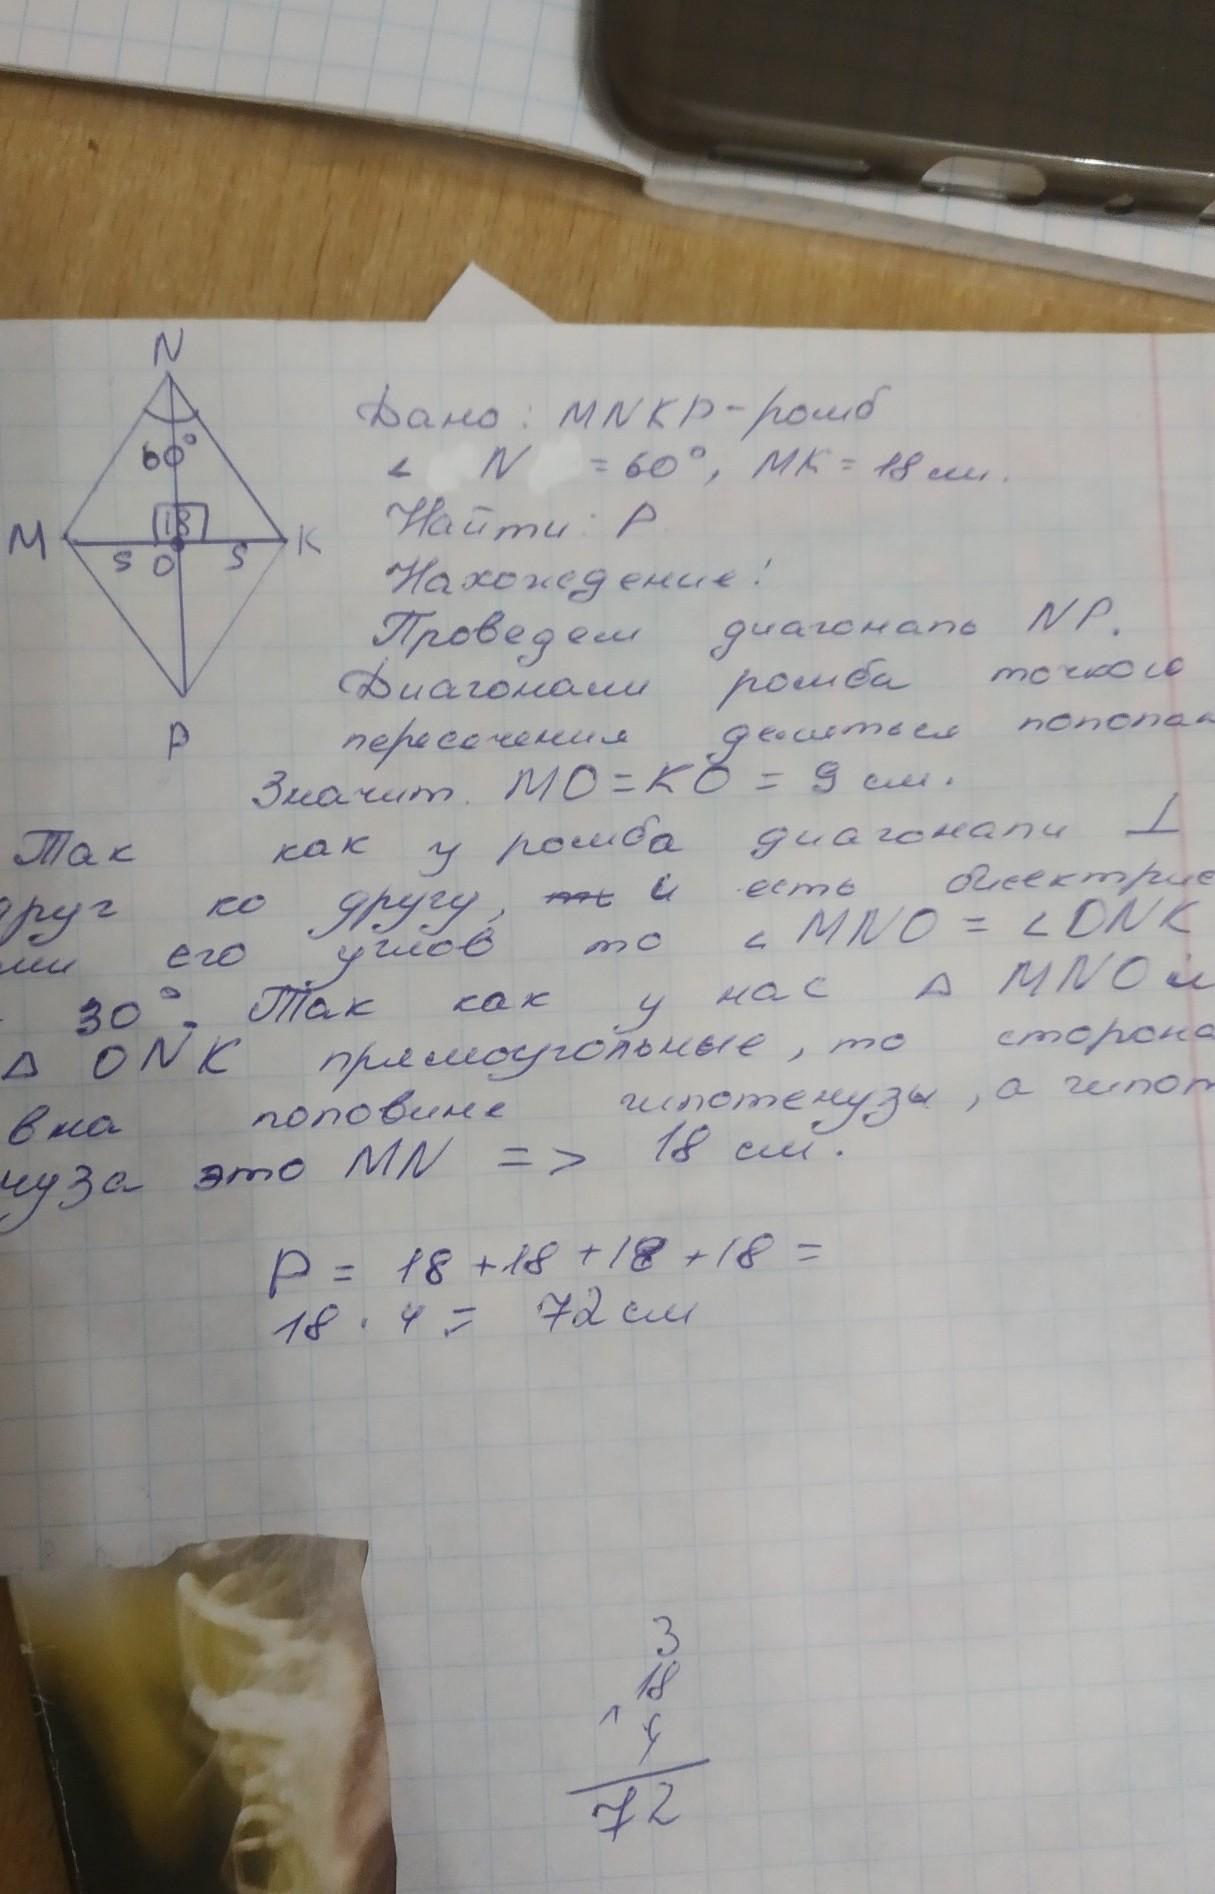 N
Дано: MNKP-ромб
60°
∠ N = 60°, MK = 18 см.
18
M
S
O
S
K
Найти: P
Нахождение:
Проведем диагональ NP.
Диагонали ромба точкою
P
пересечения деляться пополам
Значит. MO=KO = 9 см.
Так как у ромба диагонали ⊥
друг ко другу, и есть бисектрис
ми его углов то ∠ MNO = ∠ONK
30°. Так как у нас △ MNO и
△ ONK прямоугольные, то сторона
вна половине гипотенузы, а гипот
нуза это MN => 18 см.
P = 18 +18 +18 +18 =
18 · 4 = 72 см
3
18
4
72